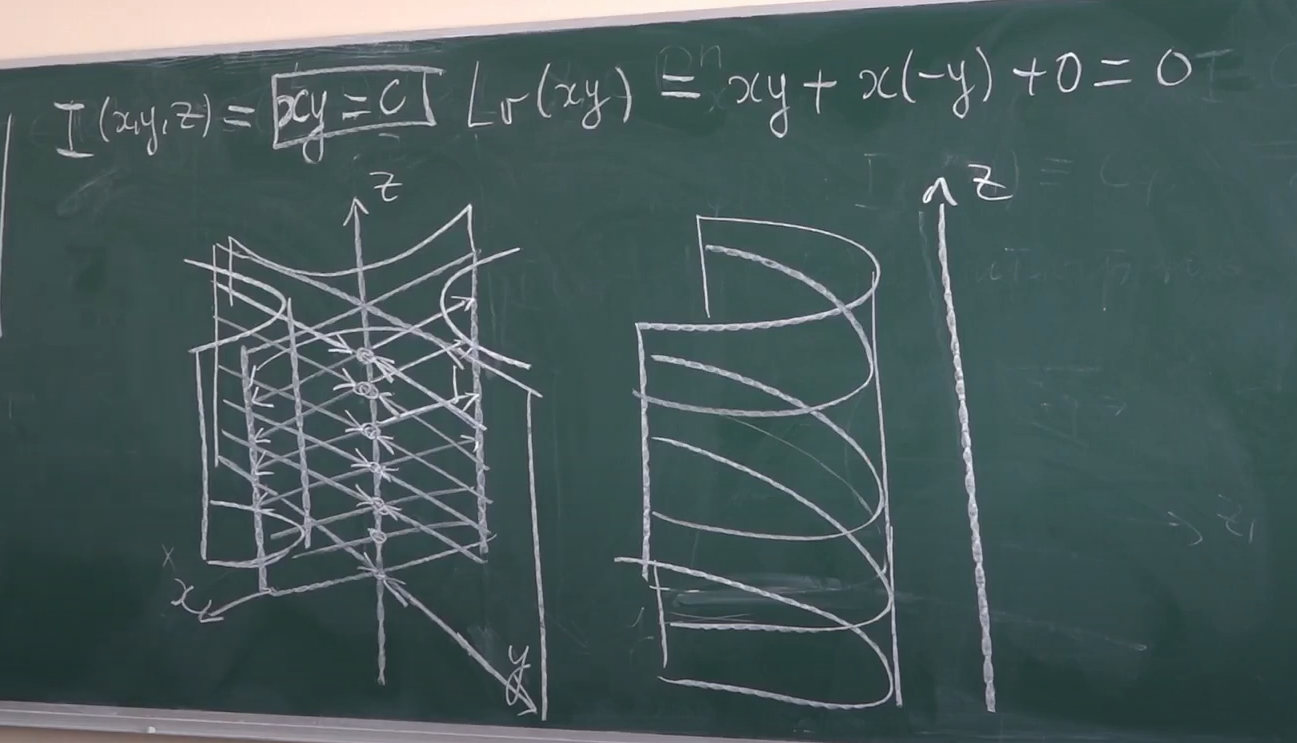 I(x,y,z) = xy = C Lv(xy) = xy + x(-y) + 0 = 0
z
z
x
x
y